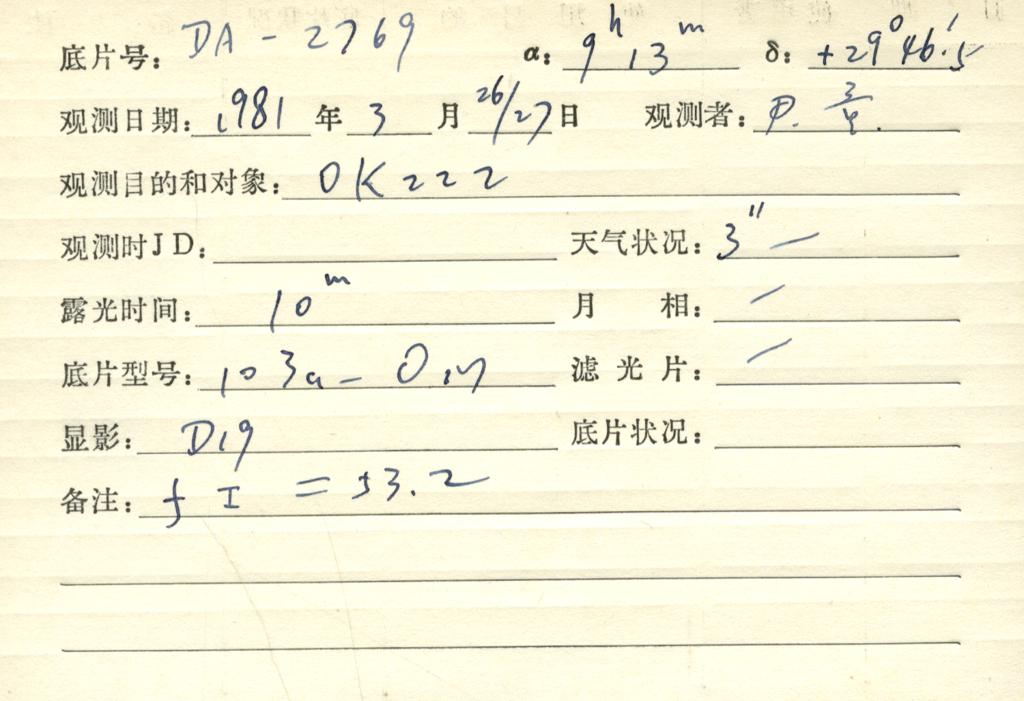 底片号: DA-2769 α: 9h 13m δ: +29°46.'5
观测日期: 1981 年 3 月 26/27 日 观测者:
观测目的和对象: OK222
观测时JD: 天气状况: 3" —
露光时间: 10m 月 相: —
底片型号: 103a-O 滤光片: —
显影: D19 底片状况:
备注: f I = 53.2